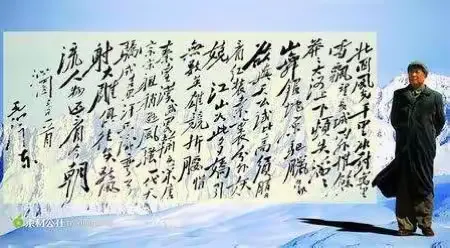 北国风光千里冰封万里
雪飘望长城内外惟余
莽莽大河上下顿失滔滔
山舞银蛇原驰腊象
欲与天公试比高须晴日
看红装素裹分外妖
娆江山如此多娇引
无数英雄竞折腰惜
秦皇汉武略输文采唐
宗宋祖稍逊风骚一代天
骄成吉思汗只识弯弓
射大雕俱往矣数风
流人物还看今朝
沁园春雪
毛泽东
素材公社